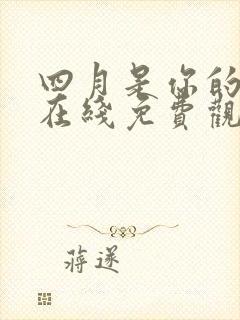 四月是你的
在綫免費觀
蔣遂